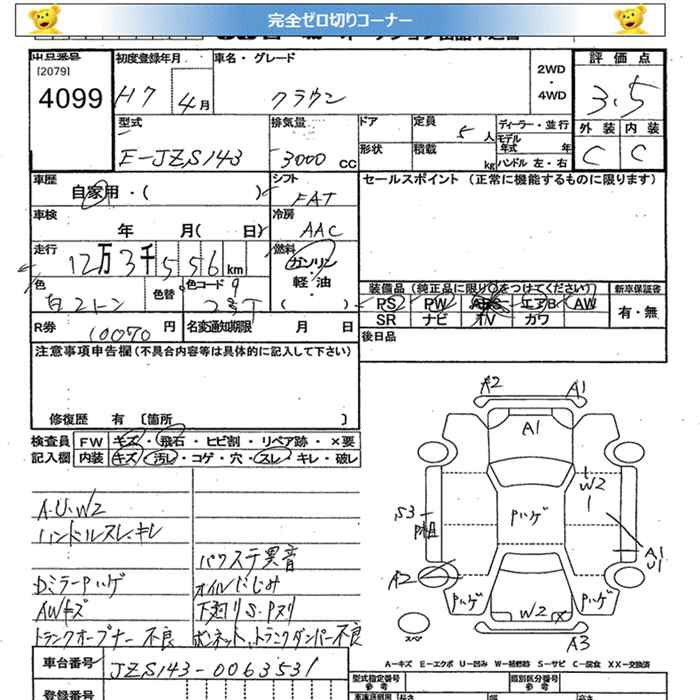 完全ゼロ切りコーナー
出品番号
[2079]
4099
初度登録年月
H7 4月
車名・グレード
クラウン
2WD
・
4WD
評価点
3.5
外装 内装
C C
型式
E-JZS143
排気量
3000 CC
ドア
形状
定員
5人
積載
kg
ディーラー・並行
モデル年式 年
ハンドル 左・右
車歴
自家用・( )
シフト
FAT
セールスポイント (正常に機能するものに限ります)
車検
年 月( 日)
冷房
AAC
走行
12万3千556km
燃料
ガソリン
・
軽油
( )
色
白2トン
色替
色コードNo
2号T
装備品(純正品に限り○をつけてください)
PS PW ABS エアB AW
SR ナビ TV カワ
新車保証書
有・無
R券
10070円
名変通知期限 月 日
後日品
注意事項申告欄(不具合内容等は具体的に記入して下さい)
修復歴 有 〔箇所 〕
検査員 FW キズ・飛石・ヒビ割・リペア跡・×要
記入欄 内装 キズ・汚レ・コゲ・穴・スレ・キレ・破レ
A.U.W2
ハンドルスレ.キレ
パワステ異音
Dミラーpハゲ
オイルにじみ
AWキズ
下廻りS.Pヌリ
トランクオープナー不良
ボンネット、トランクダンパー不良
A2 A1
A1
W2
Pハゲ
S3
A2
A1
U1
Pハゲ
Pハゲ
W2 X
A3
スペア
A-キズ E-エクボ U-凹み W-補修跡 S-サビ C-腐食 XX-交換済
車台番号
JZS143-0063531
登録番号
型式指定番号
参考
類別区分番号
参考